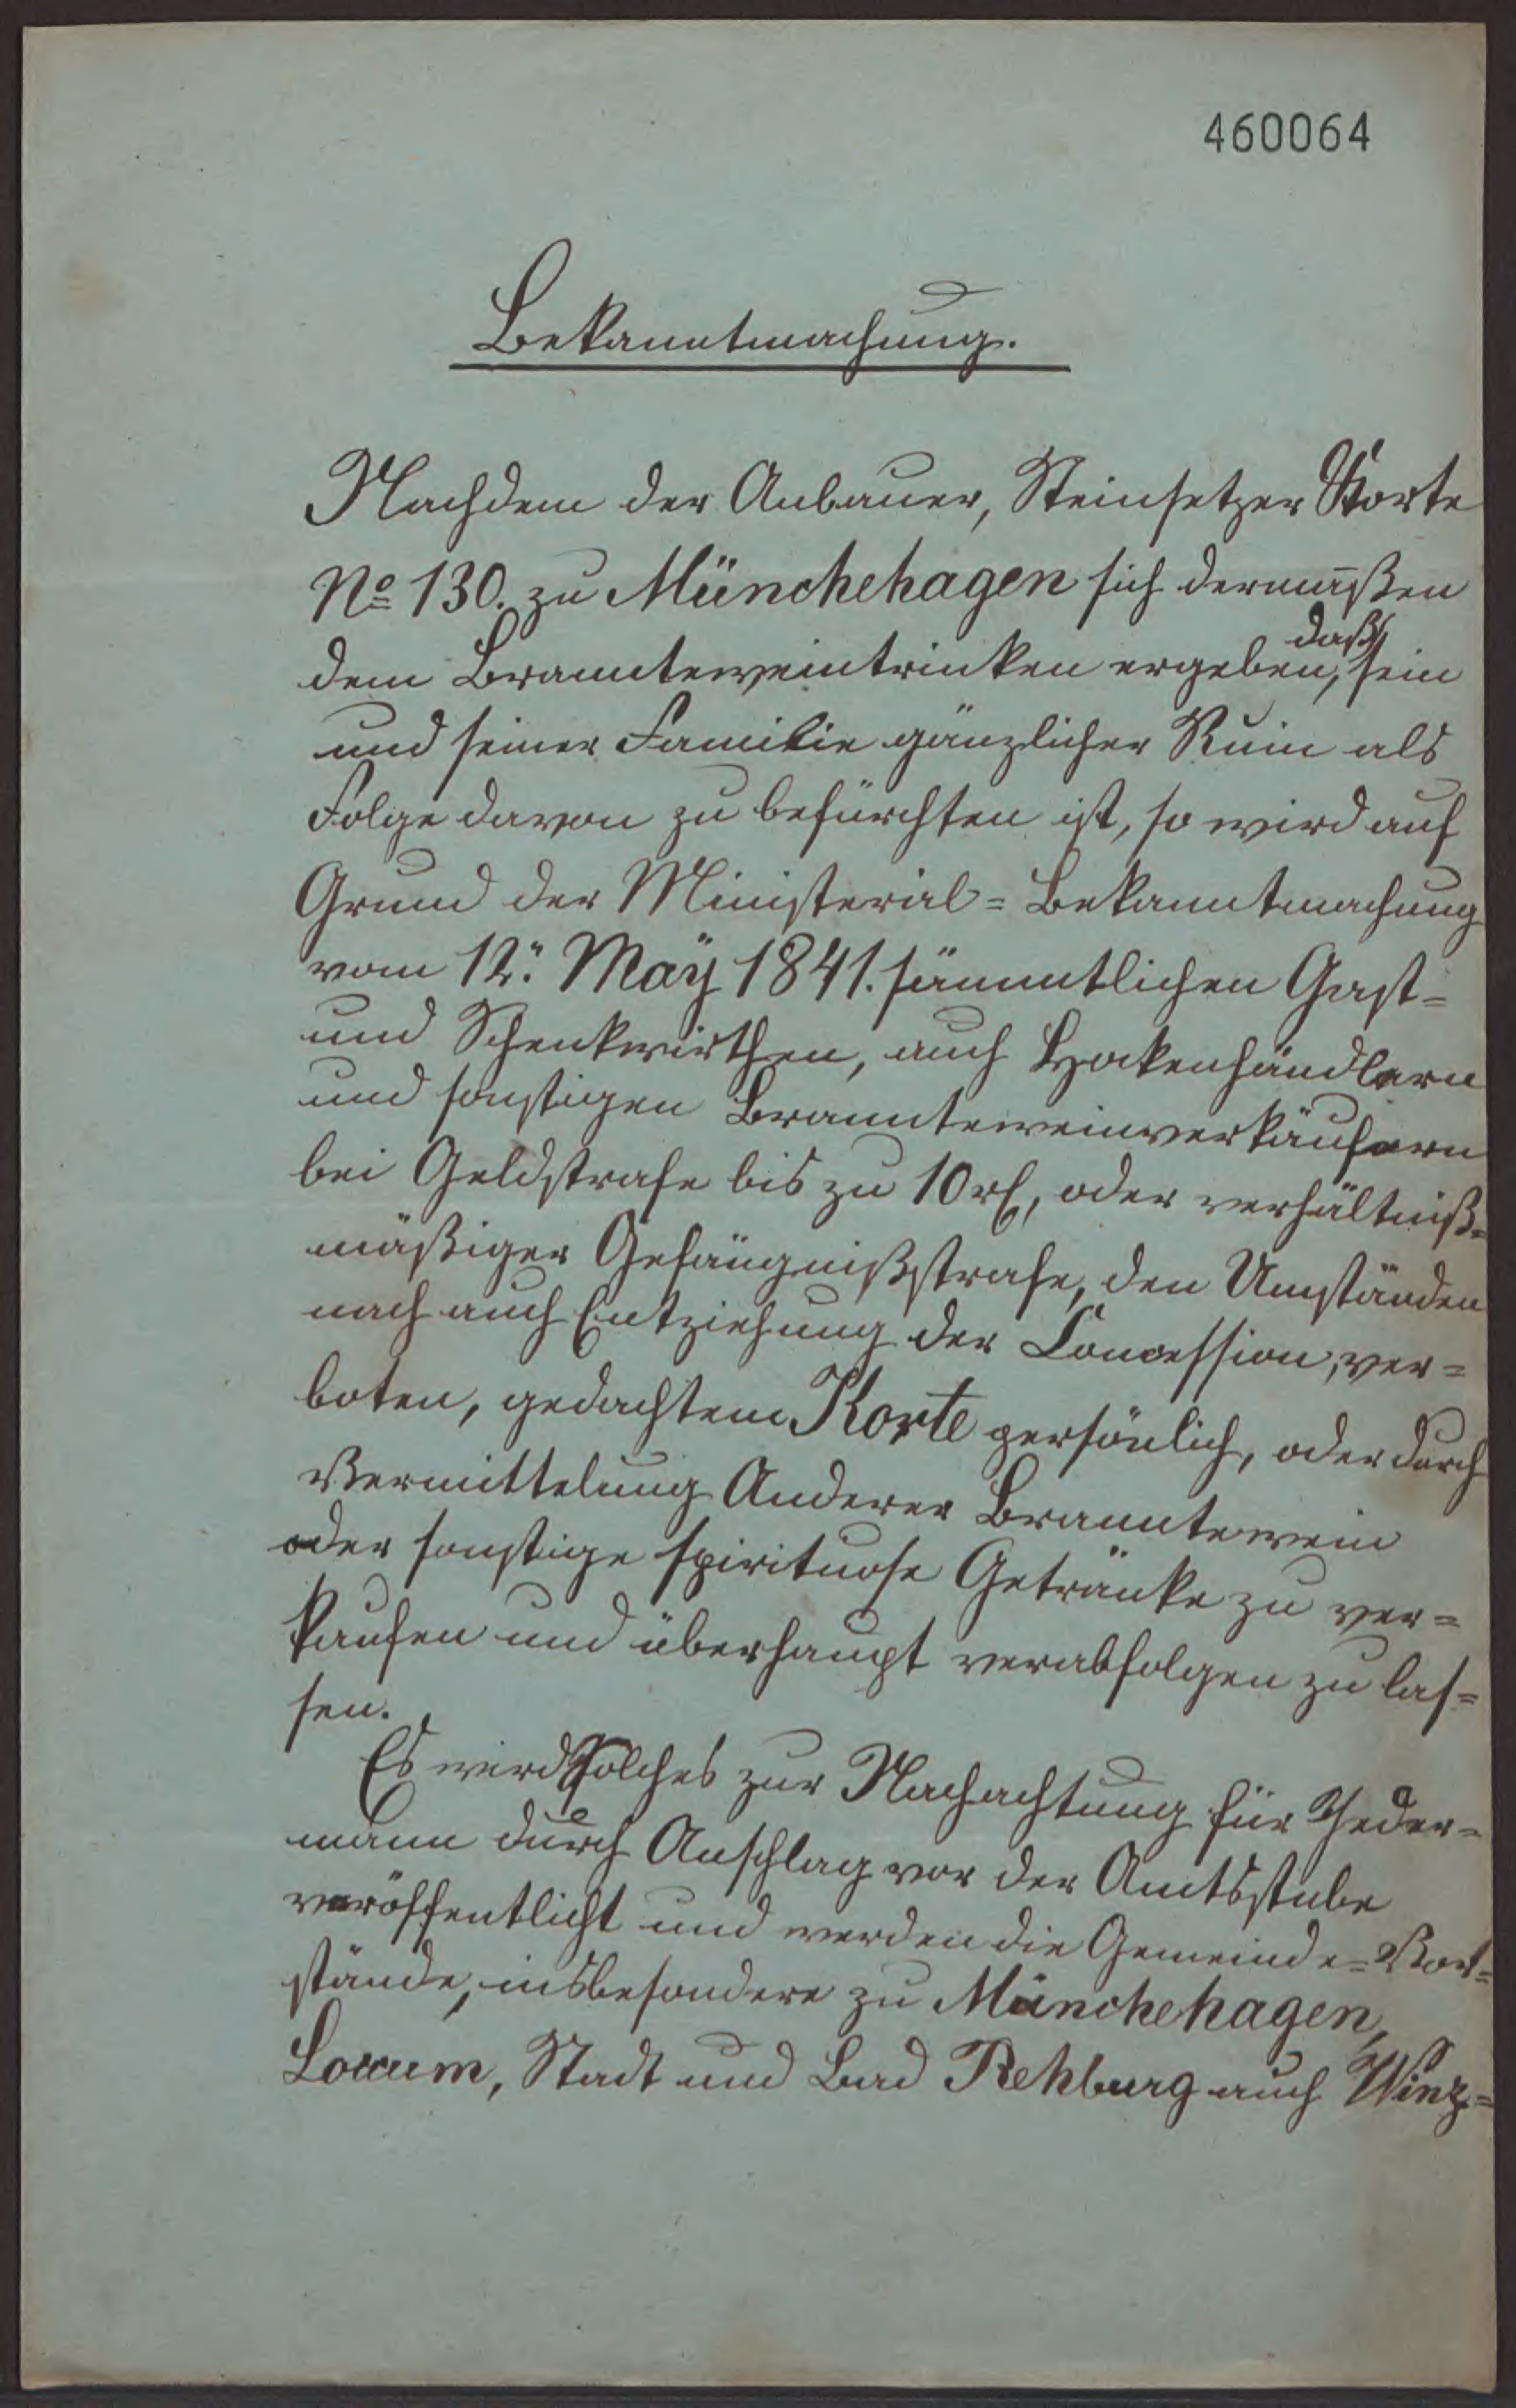 460064
Bekanntmachung.
Nachdem der Anbauer, Steinsetzer Korte
No 130. zu Münchehagen sich dermaßen
dem Brannteweintrinken ergeben, daß sein
und seiner Familie gänzlicher Ruin als
Folge davon zu befürchten ist, so wird auf
Grund der Ministerial-Bekanntmachung
vom 12. May 1841. sämmtlichen Gast-
und Schenkwirthen, auch Hockenhändlern
und sonstigen Branntweinverkäufern
bei Geldstrafe bis zu 10 rl, oder verhältniß-
mäßiger Gefängnißstrafe, den Umständen
nach auch Entziehung der Concession, ver-
boten, gedachtem Korte persönlich, oder durch
Vermittelung Anderer Branntewein
oder sonstige spirituose Getränke zu ver-
kaufen und überhaupt verabfolgen zu las-
sen.
Es wird Solches zur Nachachtung für Jeder-
mann durch Anschlag vor der Amtsstube
veröffentlicht und werden die Gemeinde-Vor-
stände, insbesondere zu Münchehagen,
Loccum, Stadt und Bad Rehburg auch Winz-